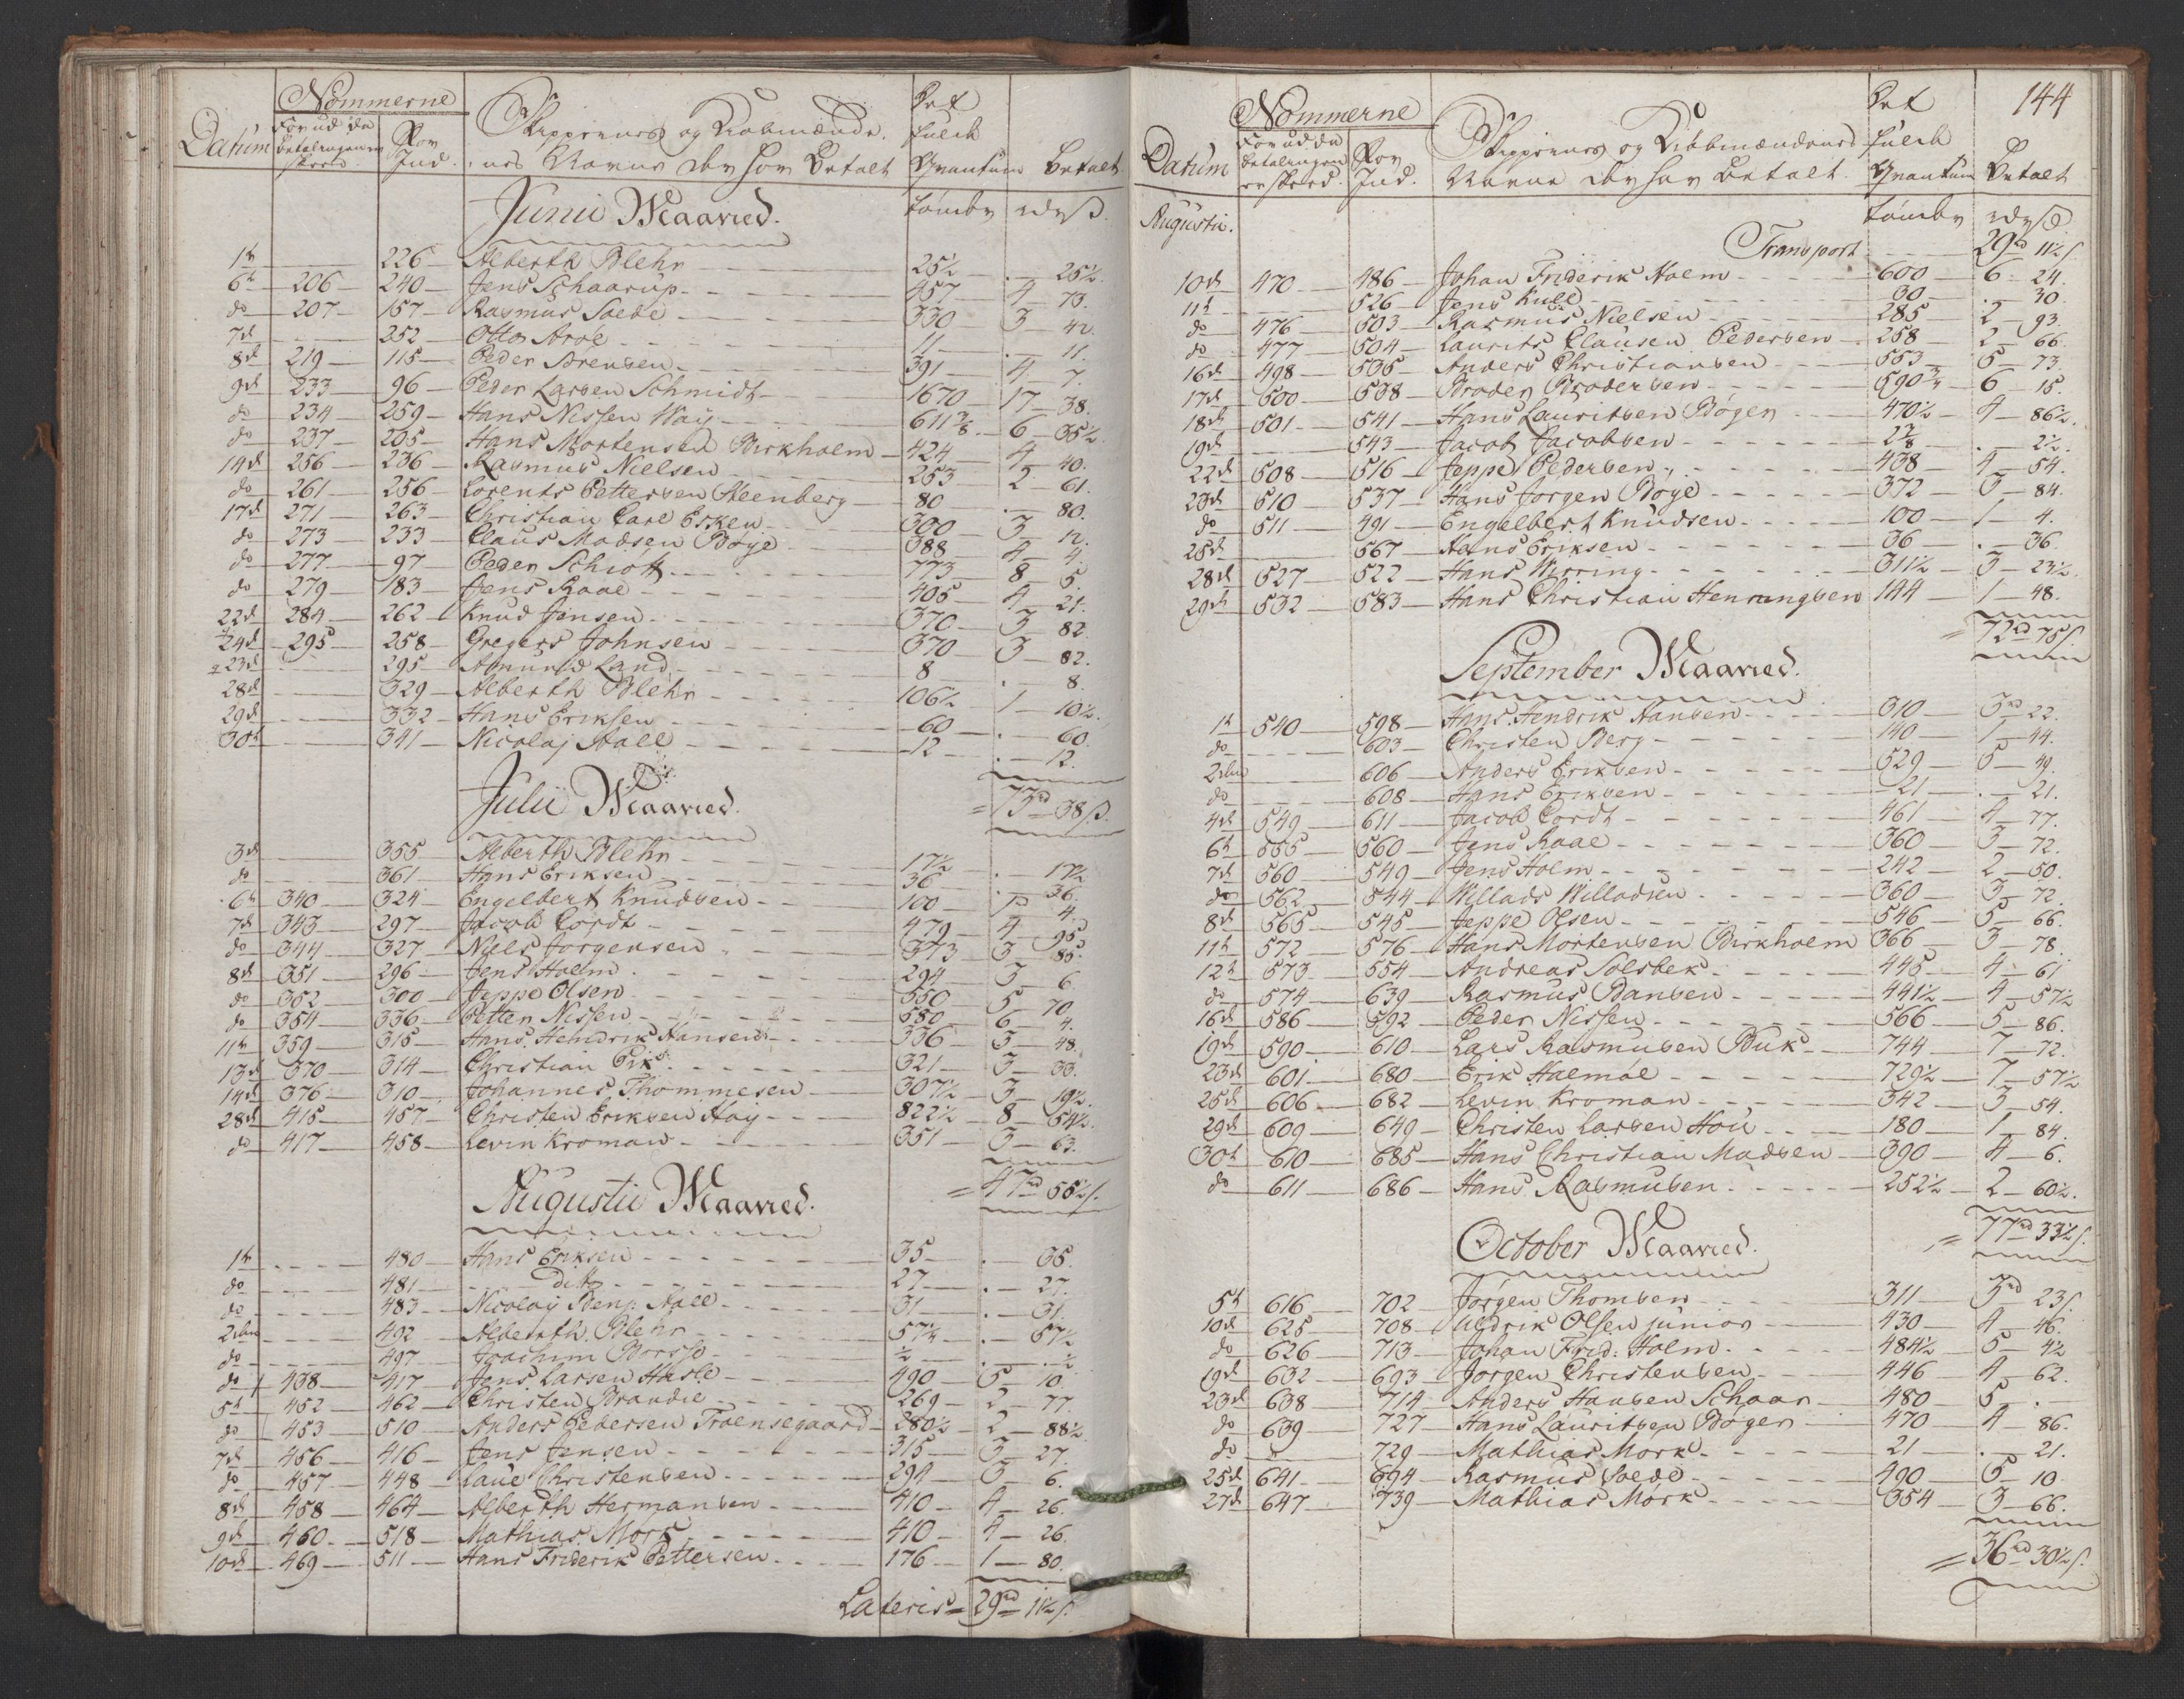 Nommerne
Datum
Forud da betalingen er skeed
For Ind.
Skippernes og Kiøbmænde-
nes Navne der har Betalt
Det fulde Quantum
Betalt
Junii Maaned.
tønder rdr ß.
1te — 226 — Alberth Blehr — 25½ — . — 25½.
6te — 206 — 240 — Jens Schaarup — 457 — 4 — 73.
do — 207 — 157 — Rasmus Soede — 330 — 3 — 42.
7de — 252 — Otto Aröe — 11 — . — 11.
8de — 219 — 115 — Peder Sørensen — 391 — 4 — 7.
9de — 233 — 96 — Peder Larsen Schmidt — 1670 — 17 — 38.
do — 234 — 259 — Hans Nissen Hay — 611⅜ — 6 — 35½.
do — 237 — 205 — Hans Mortensen Birkholm — 424 — 4 — 40.
14de — 256 — 236 — Rasmus Nielsen — 253 — 2 — 61.
do — 261 — 256 — Lorents Pettersen Steenberg — 80 — . — 80.
17de — 271 — 263 — Christian Carl Esken — 300 — 3 — 12.
do — 273 — 233 — Claus Madsen Böye — 388 — 4 — 4.
do — 277 — 97 — Peder Schiøtt — 773 — 8 — 5.
do — 279 — 183 — Jens Raae — 405 — 4 — 21.
22de — 284 — 262 — Knud Jensen — 370 — 3 — 82.
24de — 295 — 258 — Gregers Johnsen — 370 — 3 — 82.
23de — 295 — Amund Land — 8 — . — 8.
28de — 329 — Alberth Blehr — 106½ — 1 — 10½.
29de — 332 — Hans Eriksen — 60 — . — 60.
30te — 341 — Nicolaj Aall — 12 — . — 12.
= 73rd 38ß.
Julii Maaned.
3de — 355 — Alberth Blehr — 17½ — . — 17½
do — 361 — Hans Eriksen — 36 — . — 36.
6te — 340 — 324 — Engelbert Knudsen — 100 — 1 — 4.
7de — 343 — 297 — Jacob Cordt — 479 — 4 — 95.
do — 344 — 327 — Niels Jorgensen — 373 — 3 — 85.
8de — 351 — 296 — Jens Holm — 294 — 3 — 6.
do — 352 — 300 — Jeppe Olsen — 550 — 5 — 70.
do — 354 — 336 — Petter Nissen — 580 — 6 — 4.
11te — 359 — 315 — Hans Hendrik Hansen — 336 — 3 — 48.
13de — 370 — 314 — Christian Erk — 321 — 3 — 33.
14de — 376 — 310 — Johannes Thommesen — 307½ — 3 — 19½.
28de — 415 — 457 — Christen Eriksen Hay — 822½ — 8 — 54½.
do — 417 — 458 — Levin Kroman — 351 — 3 — 63.
= 47rd 55½ß.
Augustii Maaned.
1te — 480 — Hans Eriksen — 35 — . — 35.
do — 481 — ditto — 27 — . — 27.
do — 483 — Nicolay Benj: Aall — 31 — . — 31.
2den — 492 — Alberth Blehr — 57½ — . — 57½
do — 497 — Joachim Borse — ½ — . — ½
do — 438 — 417 — Jens Larsen Hasle — 490 — 5 — 10.
5te — 452 — 462 — Christen Brandie — 269 — 2 — 77.
do — 453 — 510 — Anders Pedersen Troensegaard — 280½ — 2 — 88½.
7de — 456 — 416 — Jens Jensen — 315 — 3 — 27.
do — 457 — 448 — Laue Christensen — 294 — 3 — 6.
8de — 458 — 464 — Alberth Hermansen — 410 — 4 — 26.
9de — 460 — 518 — Mathias Mork — 410 — 4 — 26.
10de — 469 — 511 — Hans Friderik Pettersen — 176 — 1 — 80.
Lateris = 29rd 11½ß.
144
Nommerne
Datum
Forud da betalingen er skeed.
For Ind.
Skippernes og Kiøbmændenes
Navne der har Betalt.
Det fulde Quantum
Betalt
tønder rdr ß
Augustii.
Transport — 29rd 11½ß.
10de — 470 — 486 — Johan Friderik Holm — 600 — 6 — 24.
11te — 526 — Jens Kull — 30 — . — 30.
do — 476 — 503 — Rasmus Nielsen — 285 — 2 — 93.
do — 477 — 504 — Laurits Clausen Pedersen — 258 — 2 — 66.
16de — 498 — 535 — Anders Christiansen — 553 — 5 — 73.
17de — 500 — 538 — Broder Brodersen — 590¾ — 6 — 15.
18de — 501 — 541 — Hans Lauritsen Böger — 470½ — 4 — 86½.
19de — 543 — Jacob Jacobsen — 2⅜ — . — 2½.
22de — 508 — 516 — Jeppe Pedersen — 438 — 4 — 54.
23de — 510 — 537 — Hans Jorgen Böye — 372 — 3 — 84.
do — 511 — 491 — Engelbert Knudsen — 100 — 1 — 4.
25de — 567 — Hans Eriksen — 36 — . — 36.
28de — 527 — 522 — Hans Wirring — 311½ — 3 — 23½.
29de — 532 — 583 — Hans Christian Henningsen — 144 — 1 — 48.
= 72rd 75ß.
September Maaned.
1te — 540 — 598 — Hans Hendrik Hansen — 310 — 3rd 22.
do — 603 — Christen Berg — 140 — 1 — 44.
2den — 606 — Anders Eriksen — 529 — 5 — 49.
do — 608 — Hans Eriksen — 21 — . — 21.
4de — 549 — 611 — Jacob Cordt — 461 — 4 — 77.
6te — 555 — 560 — Jens Raae — 360 — 3 — 72.
7de — 560 — 549 — Jens Holm — 242 — 2 — 50.
do — 562 — 544 — Willads Willadsen — 360 — 3 — 72.
8de — 565 — 545 — Jeppe Olsen — 546 — 5 — 66.
11te — 572 — 576 — Hans Mortensen Birkholm — 366 — 3 — 78.
12te — 573 — 554 — Andreas Solsbek — 445 — 4 — 61
do — 574 — 639 — Rasmus Bansen — 441½ — 4 — 57½
16de — 586 — 592 — Peder Nissen — 566 — 5 — 86.
19de — 590 — 610 — Lars Rasmusen Buk — 744 — 7 — 72.
23de — 601 — 680 — Erik Halmøe — 729½ — 7 — 57½
25de — 606 — 682 — Levin Kroman — 342 — 3 — 54.
29de — 609 — 649 — Christen Larsen Hou — 180 — 1 — 84.
30te — 610 — 685 — Hans Christian Madsen — 390 — 4 — 6.
do — 611 — 686 — Hans Rasmusen — 252½ — 2 — 60½.
= 77rd 33½ß.
October Maaned.
5te — 616 — 702 — Jörgen Thomsen — 311 — 3rd 23ß.
10de — 625 — 708 — Uldrik Olsen junior — 430 — 4 — 46.
do — 626 — 713 — Johan Frid: Holm — 484½ — 5 — 4½
19de — 632 — 693 — Jorgen Christensen — 446 — 4 — 62.
23de — 638 — 714 — Anders Hansen Schaar — 480 — 5 — .
do — 639 — 727 — Hans Lauritsen Böger — 470 — 4 — 86.
do — 729 — Mathias Mork — 21 — . — 21.
25de — 641 — 694 — Rasmus Soede — 490 — 5 — 10.
27de — 647 — 739 — Mathias Mork — 354 — 3 — 66.
= 36rd 30½ß.